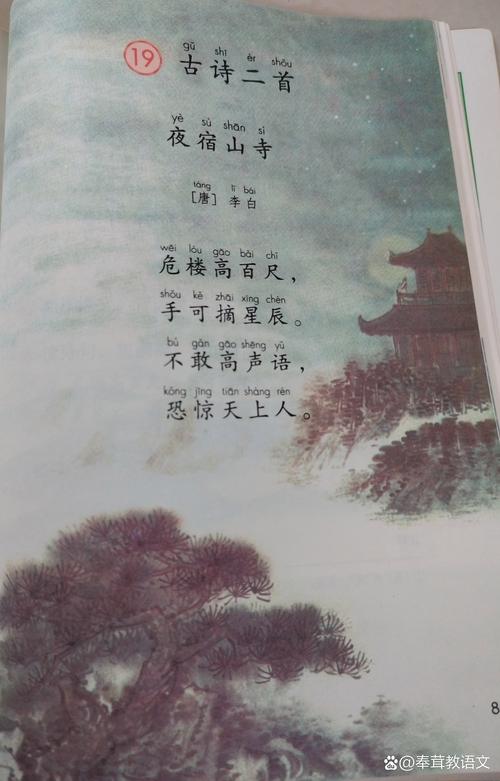 19
gǔ shī èr shǒu
古诗二首
yè sù shān sì
夜宿山寺
táng lǐ bái
[唐] 李白
wēi lóu gāo bǎi chǐ
危楼高百尺，
shǒu kě zhāi xīng chén
手可摘星辰。
bù gǎn gāo shēng yǔ
不敢高声语，
kǒng jīng tiān shàng rén
恐惊天上人。
8
@奉茸教语文